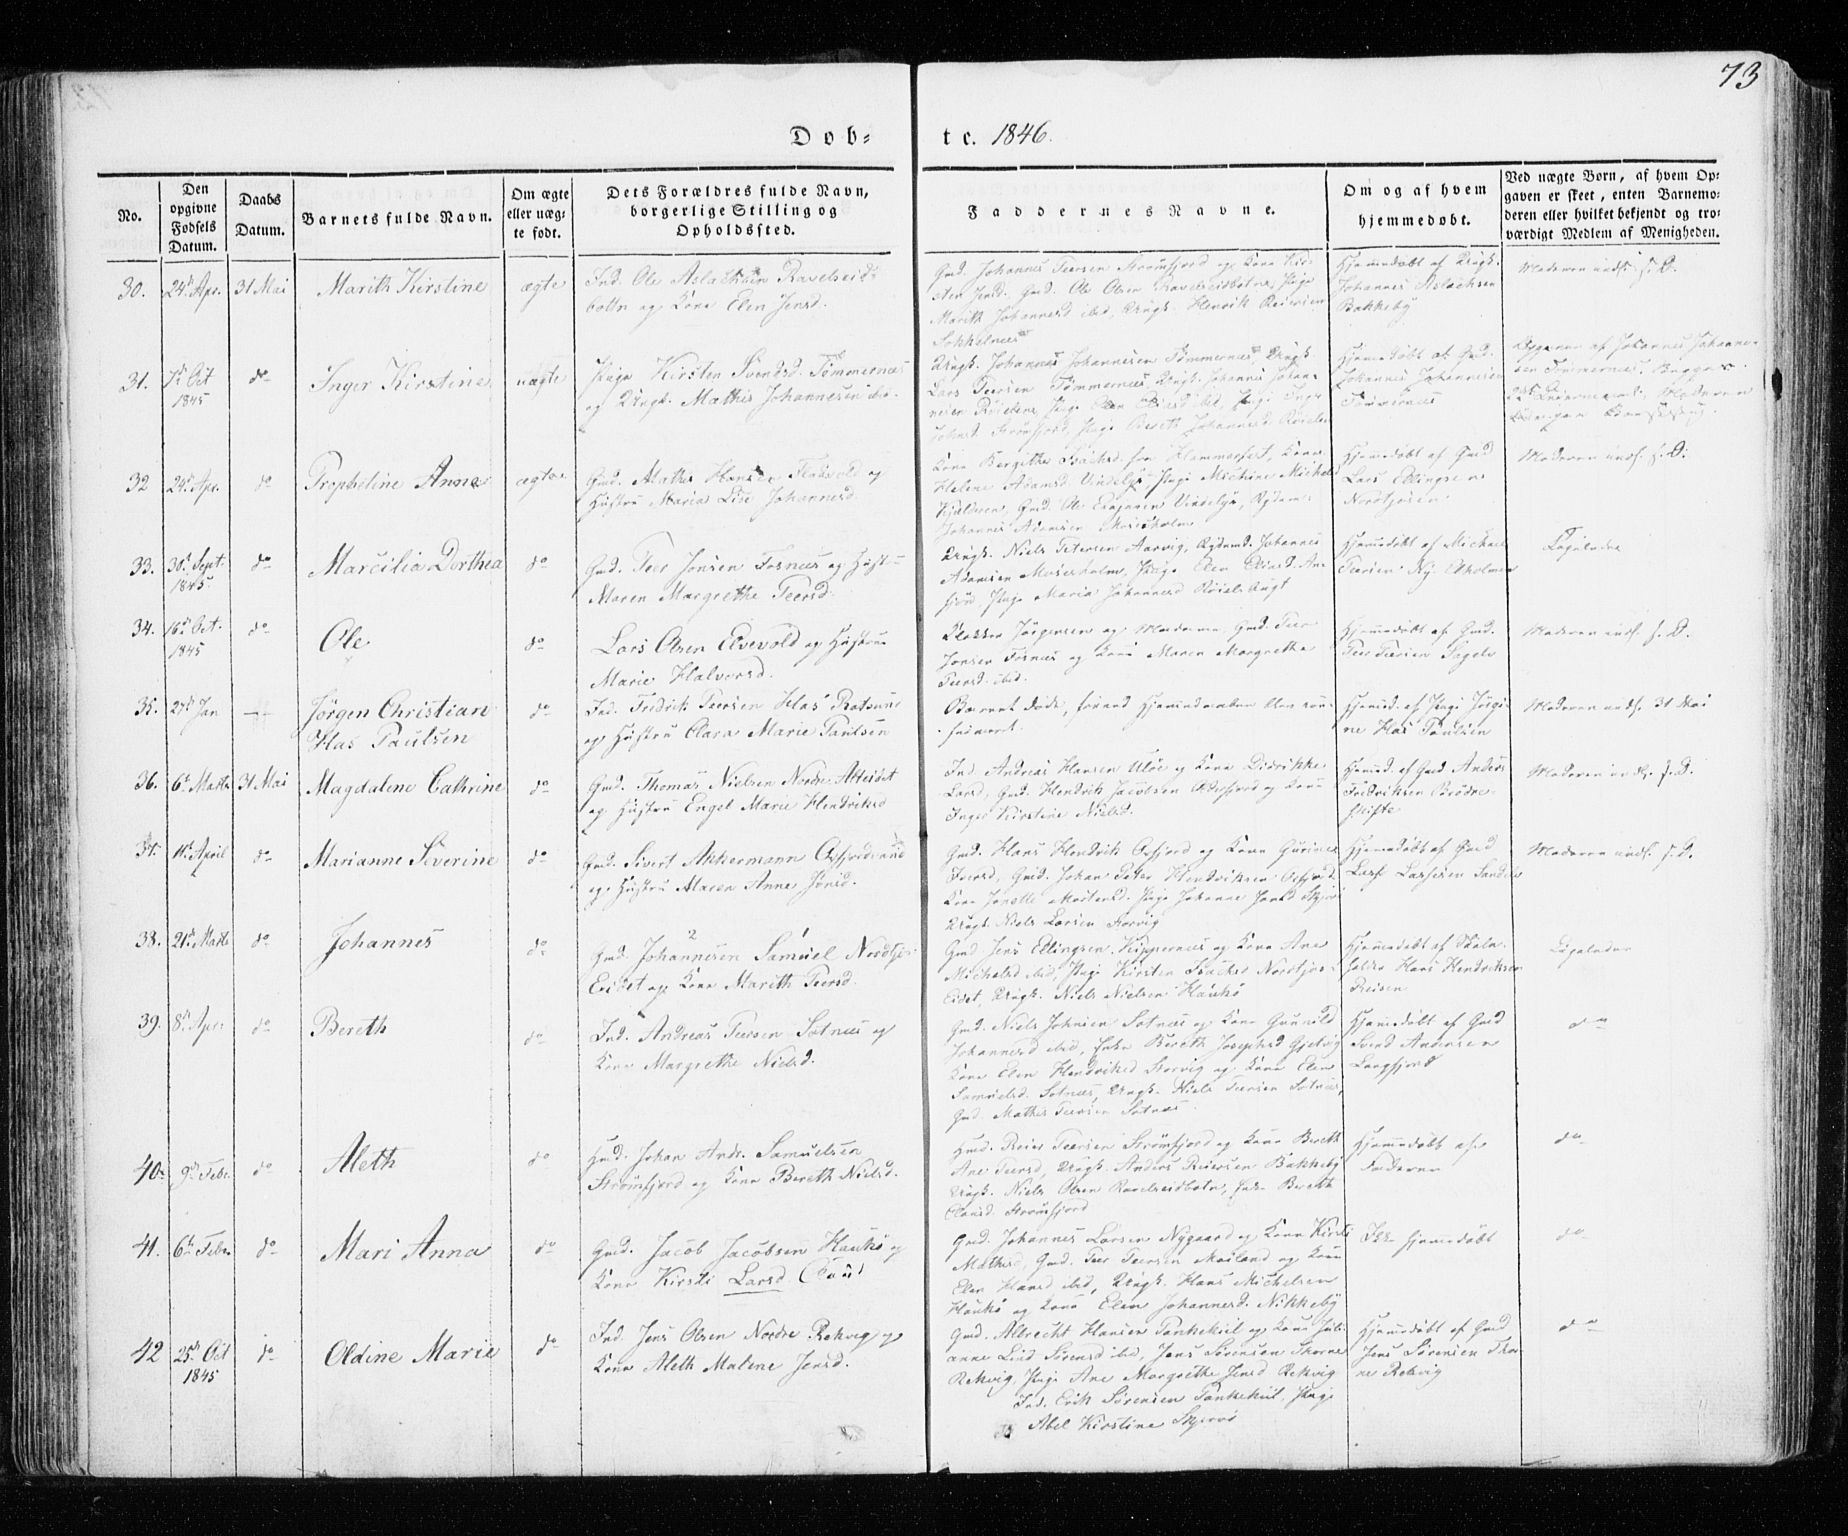 73
Døb-
te. 1846.
No.
Den opgivne Fødsels Datum.
Daabs Datum.
Barnets fulde Navn.
Om ægte eller uæg- te født.
Dets Forældres fulde Navn, borgerlige Stilling og Opholdssted.
Faddernes Navne.
Om og af hvem hjemmedøbt.
Ved uægte Børn, af hvem Op- gaven er skeet, enten Barnemo- deren eller hvilket bekjendt og tro- værdigt Medlem af Menigheden.
30. 24de Apr. 31 Mai Marith Kirstine ægte
Ind. Ole Aslachsen Ravelseid-
botn og Kone Elen Jensd.
Gmd. Johannes Peersen Strømfjord og Kone Kir-
sten Jensd. Gmd. Ole Olsen Ravelseidbotn, Pige
Marith Johannesd ibid, Ungk. Henrik Reiersen
Sokkelnæs
Hjemmedøbt af Ungk.
Johannes Aslachsen
Bakkeby
Moderen indl. s. D.
31. 7de Oct 1845 do Inger Kirstine uægte
Pige Kirsten Svendsd. Tømmernæs
og Ungk. Mathis Johannesen ibid.
Ungk. Johannes Johannesen Tømmernæs, Ungk.
Lars Peersen Tømmernæs, Ungk. Johannes Johan-
nesen
Hjemmedøbt af Gmd.
Johannes Johannesen
Tømmernæs
Opgaven af Johannes Johanne-
sen Tømmernæs.
32 24de Apr. do Propheline Anna ægte
Gmd. Mathis Hansen Flatvold og
Hustru Maria Lise Johannesd.
Kone Bergithe Isachsd. fra Hammerfest, Kone
Helene Adamsd Vindelys, Pige Michine Michels
Johannes Adamsen Maursholm
Hjemmedøbt af Gmd
Lars Edlingsen
Nordfjosen
Moderen indl. s. D.
33. 30te Sept. 1845. do Marcilia Dorthea do
Gmd. Peer Jonsen Fosnæs og Hust-
Maren Margrethe Peersd.
Ungk. Niels Petersen Aarvig, Johannes
Adamsen Maursholm, Pige Elen
Pige Maria Johannesd
Hjemmedøbt af Michael
Peersen Ny
Ligeledes
34. 16de Oct. 1845 do Ole do
Lars Olsen Elvevold og Hustrue
Marie Halvorsd.
Klokker Jørgensen og Madame, Gmd. Peer
Jonsen Fosnæs og Kone Maren Margrethe
Peersd. ibid.
Hjemmedøbt af Gmd.
Peer Peersen
Moderen indl. s. D.
35. 27de Jan Jørgen Christian
Has Paulsen do
Ind. Fredrik Peersen Has Rotsund
og Hustru Clara Marie Paulsen
Barnet døde, førend Hjemmedaaben blev con-
firmeret.
Hjemmd. af Pige Jørgi-
ne Has Paulsen
Moderen indl. 31 Mai
36. 6te Marts 31 Mai Magdalene Cathrine do
Gmd. Thomas Nielsen Nordre
og Hustru Engel Marie Hendriksd
Ind. Andreas Hansen Uløe og Kone Didrikke
Larsd, Gmd. Hendrik Jacobsen og Kone
Inger Kirstine Nielsd.
Hjemmd. af Gmd Anders
Fredriksen Brødre-
skifte
Moderen indl. s. D.
37. 11te April do Marianne Severine do
Gmd. Sivert Akkermann Oxfjordsund
og Hustru Maren Anne Jonsd.
Gmd. Hans Hendrik Oxfjord og Kone Gurine
Peersd, Gmd. Johan Peter Hendriksen Oxfjord.
Kone Jonette Mortensd. Pige Johanne Jonsd
Ungk. Niels Larsen Storvig
Hjemmedøbt af Gmd
Lasse Lassesen
Moderen indl. s. D.
38. 21de Marts do Johannes do
Gmd. Johannesen Samuel Nordfjos-
Eidet og Kone Marith Peersd.
Gmd Jens Edlingsen Kippernæs og Kone Ane
Michelsd ibid, Pige Kirsten Isachsd Nordfjos-
Eidet, Ungk. Niels Nielsen Haukø
Hjemmedøbt af Skole-
holder Hans Hendriksen
Reisen
Ligeledes
39. 8de Apr. do Bereth do
Ind. Andreas Peersen Sotnæs og
Kone Margrethe Nielsd.
Gmd. Niels Johnsen Sotnæs og Kone Gunnild
Johannesd ibid, Enke Bereth Josephsd
Kone Elen Hendriksd Storvig og Kone Elen
Samuelsd. Sotnæs, Ungk. Niels Peersen Sotnæs,
Gmd. Mathis Peersen Sotnæs.
Hjemmedøbt af Gmd
Svend Andersen
Langfjord
do
40. 9de Febr. do Aleth do
Gmd. Johan Andr. Samuelsen
Strømfjord og Kone Bereth Nielsd.
Gmd. Reier Peersen Strømfjord og Kone Bereth
Ane Peersd, Ungk. Anders Reiersen Bakkeby
Ungk. Niels Olsen Ravelseidbotn, Enke Bereth
Strømfjord
Hjemmedøbt af
Faderen
do
41. 6te Febr. do Mari Anna do
Gmd. Jacob Jacobsen Haukø og
Kone Kirsti Larsd.
Gmd. Johannes Larsen Nygaard og Kone Kirsti
Mathisd, Gmd. Peer Peersen Meiland og Kone
Elen Hansd ibid, Ungk. Hans Michelsen
Haukø og Kone Elen Johannesd. Nikkeby
Ikke hjemmedøbt
do
42 25de Oct 1845 do Oldine Marie do
Ind. Jens Olsen Nordre Rekvig og
Kone Aleth Malene Jensd.
Gmd. Albrecht Hansen Tankekiil og Kone Juli-
anne Lind Sørensd ibid, Jens Sørensen Thorne
Rekvig, Pige Ane Margrethe Jensd Rekvig
Ind. Erik Sørensen Tankekiil, Pige
Abel Kirstine Skjervø
Hjemmedøbt af Gmd
Jens Sørensen Thor-
ne Rekvig
do